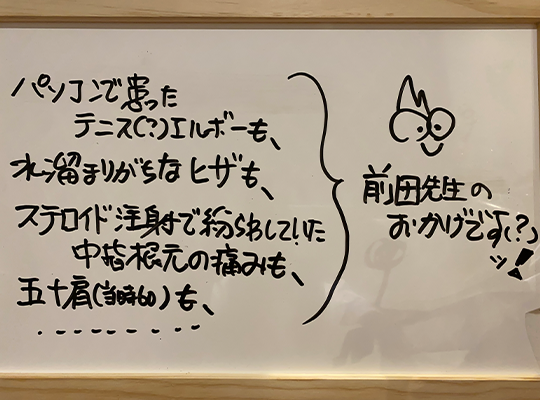 パソコンで患った
テニス(?)エルボーも、
水溜まりがちなヒザも、
ステロイド注射で紛らわしていた
中指根元の痛みも、
五十肩(当時60)も、
・・・・・・・・・・
前田先生の
おかげです(?)
ッ!